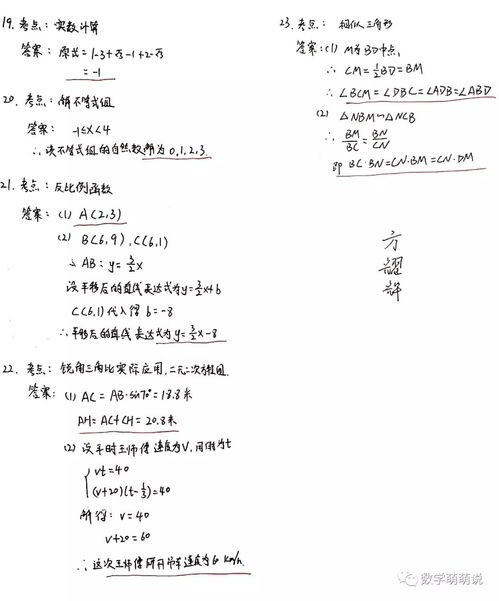 19. 考点: 实数计算
答案: 原式=1-3+√3-1+2-√3
=-1
20. 考点: 解不等式组
答案: -1≤x<4
∴该不等式组的自然数解为 0,1,2,3.
21. 考点: 反比例函数
答案: (1) A(2,3)
(2) B(6,9), C(6,1)
∴ AB: y=3/2x
设平移后的直线表达式为y=3/2x+b
C(6,1)代入得 b=-8
∴平移后的直线表达式为y=3/2x-8
22. 考点: 锐角三角比实际应用, 二元二次方程组.
答案: (1) AC=AB·sin70°=18.8米
AH=AC+CH=20.8米
(2) 设平时王师傅速度为V, 用时为t
vt=40
(v+20)(t-1/3)=40
解得: v=40
v+20=60
∴这次王师傅所开车速度为60 km/h.
23. 考点: 相似三角形
答案: (1) M为BD中点,
∴ CM=1/2BD=BM
∴ ∠BCM=∠DBC=∠ADB=∠ABD
(2) △NBM∽△NCB
∴ BM/BC=BN/CN
即 BC·BN=CN·BM=CN·DM
方
数学萌萌说